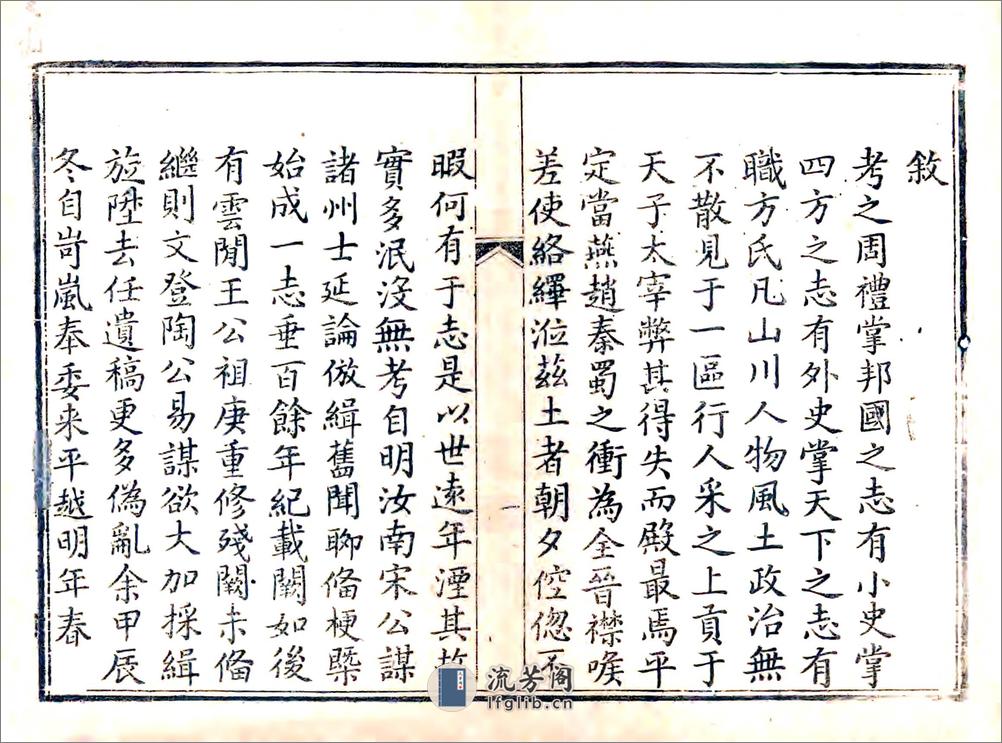 敘
考之周禮掌邦國之志有小史掌
四方之志有外史掌天下之志有
職方氏凡山川人物風土政治無
不散見于一區行人采之上貢于
天子太宰弊其得失而殿最焉平
定當燕趙秦蜀之衝為全晉襟喉
差使絡繹涖茲土者朝夕倥偬不
一
暇何有于志是以世遠年湮其故
實多泯沒無考自明汝南宋公謀
諸州士延論倣緝舊聞聊俻梗槩
始成一志垂百餘年紀載闕如後
有雲間王公祖庚重修殘闕未俻
繼則文登陶公易謀欲大加採緝
旋陞去任遺稿更多偽亂余甲辰
冬自岢嵐奉委来平越明年春
流芳阁
lfglib.cn